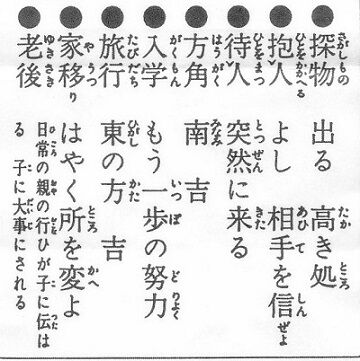 探物 出る 高き処
抱人 よし 相手を信ぜよ
待人 突然に来る
方角 南 吉
入学 もう一歩の努力
旅行 東の方 吉
家移り はやく所を変よ
老後 日常の親の行ひが子に伝はる 子に大事にされる